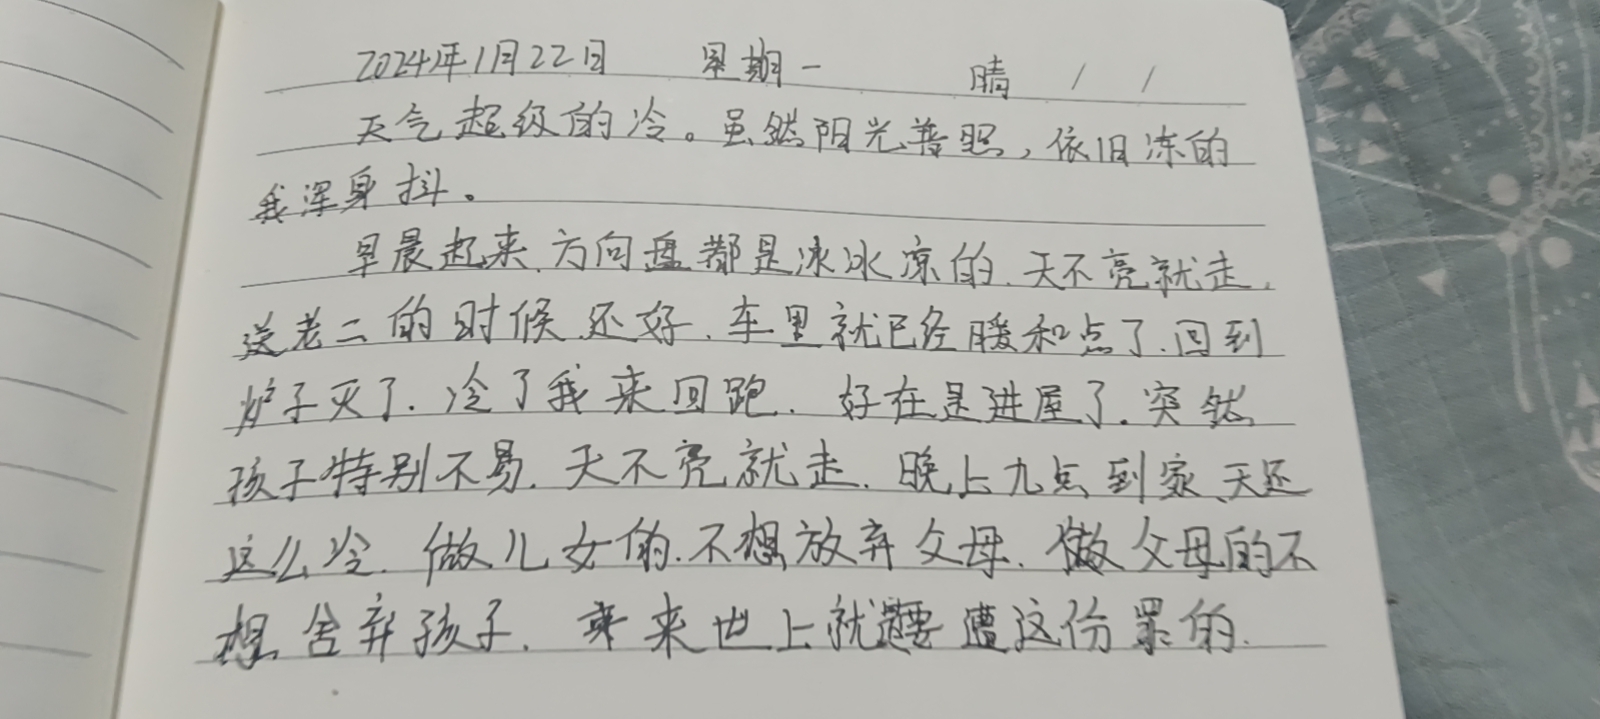 2024年1月22日 星期一 晴 / /
天气超级的冷。虽然阳光普照，依旧冻的
我浑身抖。
早晨起来.方向盘都是冰冰凉的.天不亮就走，
送老二的时候.还好.车里就已经暖和点了.回到
炉子灭了.冷了我来回跑.好在是进屋了.突然
孩子特别不易.天不亮就走.晚上九点到家、天还
这么冷.做儿女的.不想放弃父母.做父母的不
想舍弃孩子.来世上就要遭这份罪的.